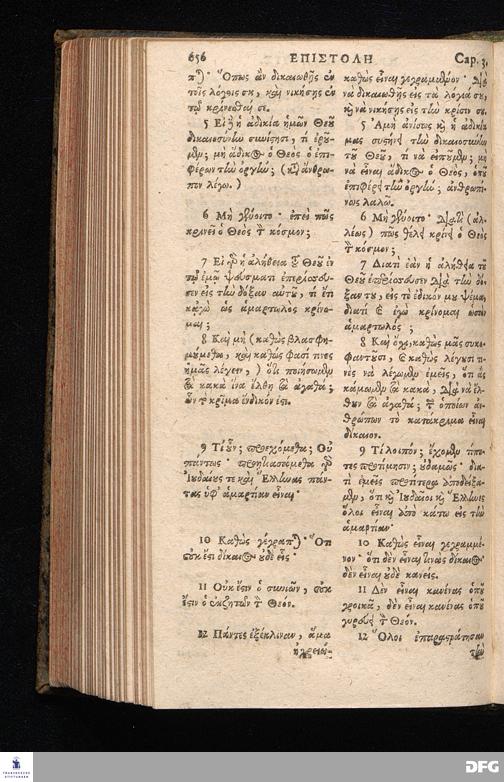 656 ΕΠΙΣΤΟΛΗ Cap. 3.
Ὅπως ἂν δικαιωθῇς ἐν
τοῖς λόγοις σου, καὶ νικήσῃς ἐν
τῷ κρίνεσθαί σε.
5 Εἰ δὲ ἡ ἀδικία ἡμῶν Θεοῦ
δικαιοσύνην συνίστησι, τί ἐροῦ-
μεν; μὴ ἄδικος ὁ Θεὸς ὁ ἐπι-
φέρων τὴν ὀργήν; (κατὰ ἄνθρω-
πον λέγω.)
6 Μὴ γένοιτο· ἐπεὶ πῶς
κρινεῖ ὁ Θεὸς τὸν κόσμον;
7 Εἰ γὰρ ἡ ἀλήθεια τοῦ Θεοῦ ἐν
τῷ ἐμῷ ψεύσματι ἐπερίσσευ-
σεν εἰς τὴν δόξαν αὐτοῦ, τί ἔτι
κἀγὼ ὡς ἁμαρτωλὸς κρίνο-
μαι;
8 Καὶ μὴ (καθὼς βλασφη-
μούμεθα, καὶ καθώς φασί τινες
ἡμᾶς λέγειν,) ὅτι ποιήσωμεν
τὰ κακὰ ἵνα ἔλθῃ τὰ ἀγαθά;
ὧν τὸ κρῖμα ἔνδικόν ἐστι.
9 Τί οὖν; προεχόμεθα; Οὐ
πάντως· προῃτιασάμεθα γὰρ
Ἰουδαίους τε καὶ Ἕλληνας πάν-
τας ὑφ' ἁμαρτίαν εἶναι·
10 Καθὼς γέγραπται· Ὅτι
οὐκ ἔστι δίκαιος οὐδὲ εἷς·
11 Οὐκ ἔστιν ὁ συνιῶν, οὐκ
ἔστιν ὁ ἐκζητῶν τὸν Θεόν.
12 Πάντες ἐξέκλιναν, ἅμα
ἠχρειώ-
καθὼς εἶναι γεγραμμένον· Διὰ
νὰ δικαιωθῇς εἰς τὰ λόγιά σου,
καὶ νὰ νικήσῃς εἰς τὴν κρίσιν σου.
5 Ἀμὴ ἀνίσως καὶ ἡ ἀδικία
μας συστήνῃ τὴν δικαιοσύνην
τοῦ Θεοῦ, τί νὰ εἰποῦμεν; μὴ
νὰ εἶναι ἄδικος ὁ Θεὸς, ὁποῦ
ἐπιφέρῃ τὴν ὀργήν; ἀνθρωπί-
νως λαλῶ.
6 Μὴ γένοιτο· Διατὶ (ἀλ-
λέως) πῶς θέλῃ κρίνῃ ὁ Θεὸς
τὸν κόσμον;
7 Διατὶ ἐὰν ἡ ἀλήθεια τοῦ
Θεοῦ ἐπερίσσευσεν διὰ τὴν δό-
ξαν του, εἰς τὸ ἐδικόν μου ψέμα,
διατὶ καὶ ἐγὼ κρίνομαι ὡσὰν
ἁμαρτωλός;
8 Καὶ ὄχι, καθὼς μᾶς συκο-
φαντοῦσι, καὶ καθὼς λέγουσι τι-
νὲς νὰ λέγωμεν ἐμεῖς, ὅτι ἂς
κάμωμεν τὰ κακὰ, διὰ νὰ ἔλ-
θουν τὰ ἀγαθά; τῶν ὁποίων ἀν-
θρώπων τὸ κατάκριμα εἶναι
δίκαιον.
9 Τί λοιπόν; ἔχομεν τίπο-
τες προτίμησιν; οὐδαμῶς· δια-
τὶ ἐμεῖς προτύτερα ἀποδείξα-
μεν, ὅτι καὶ Ἰουδαῖοι καὶ Ἕλληνες
ὅλοι εἶναι ἀπὸ κάτω εἰς τὴν
ἁμαρτίαν·
10 Καθὼς εἶναι γεγραμμέ-
νον· ὅτι δὲν εἶναι τινὰς δίκαιος
δὲν εἶναι οὐδὲ κανείς.
11 Δὲν εἶναι κανένας ὁποῦ
γροικᾷ, δὲν εἶναι κανένας ὁποῦ
γυρεύει τὸν Θεόν.
12 Ὅλοι ἐπαραστράτησαν
τὴν
FRANCKESCHE STIFTUNGEN
DFG